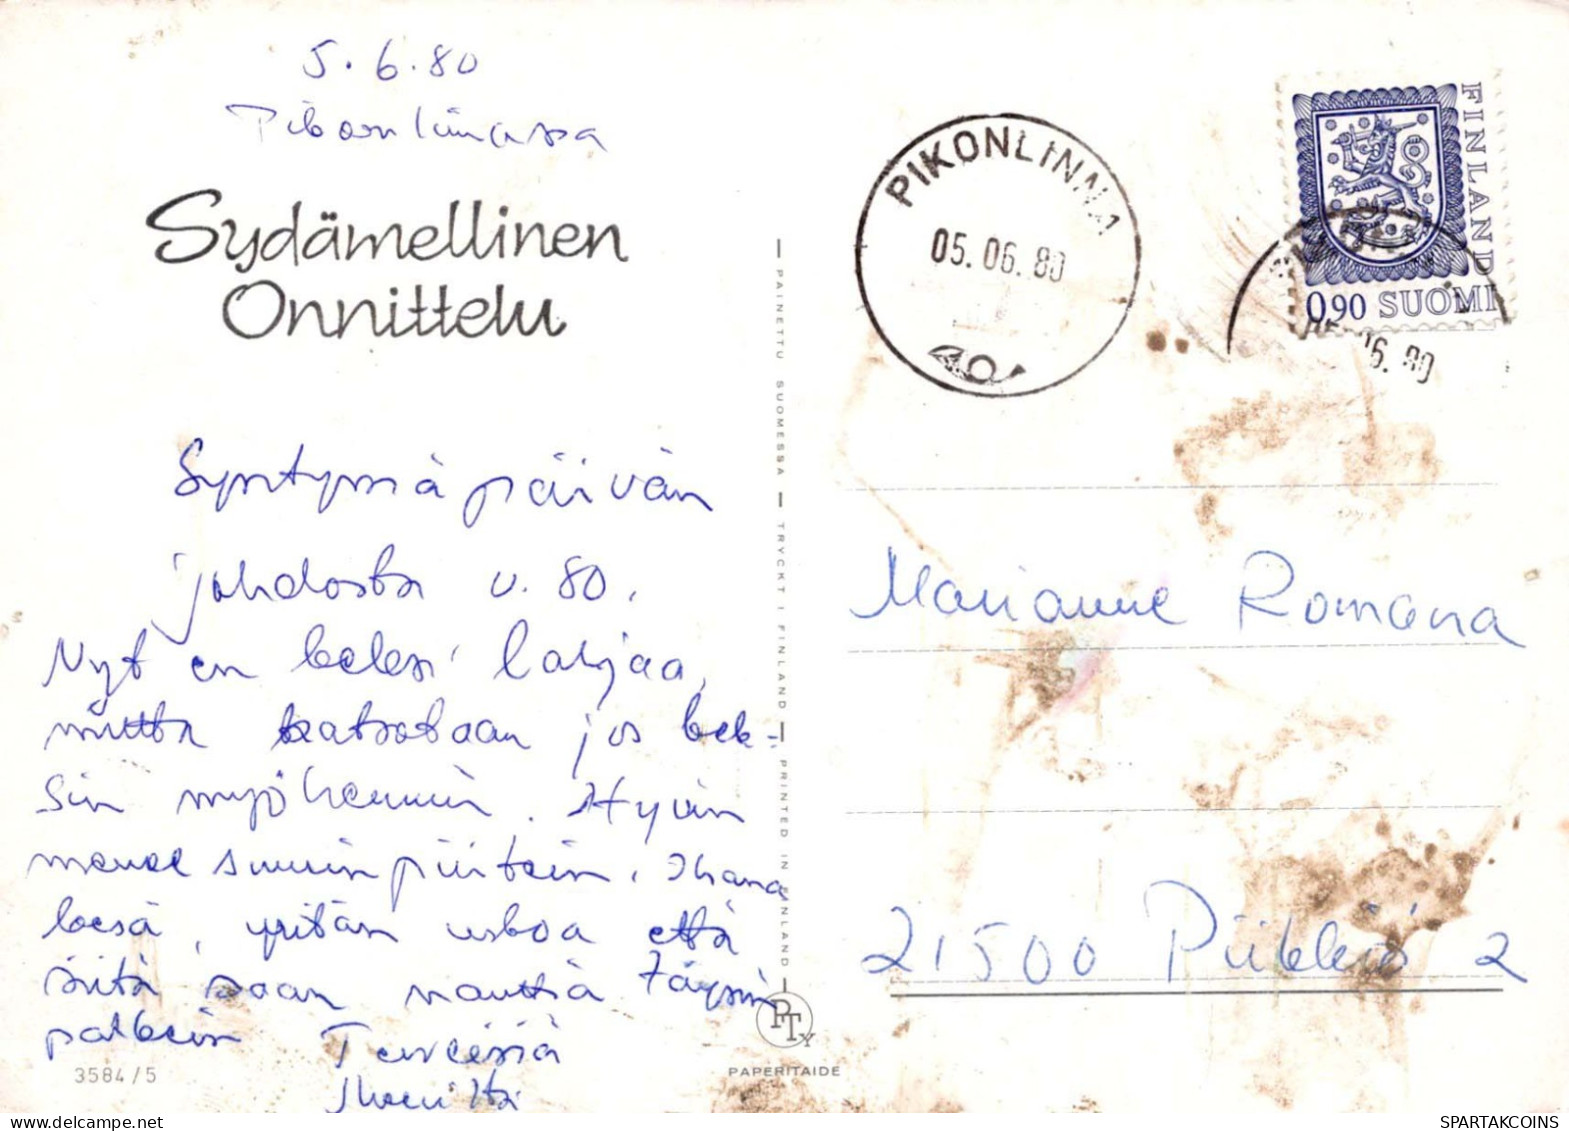 5.6.80
Pikonlinnassa
Sydämellinen
Onnittelu
Syntymäpäivän
johdosta v. 80.
Nyt en keksi lahjaa,
mutta katsotaan jos kek-
sin myöhemmin. Hyvin
menee suurin piirtein. Ihana
kesä, yritän uskoa että
siitä saan nauttia täysin
palkein Terveisiä
3584/5
PAINETTU SUOMESSA — TRYCKT I FINLAND — PRINTED IN FINLAND
PTY
PAPERITAIDE
PIKONLINNA
05.06.80
FINLAND
0,90 SUOMI
06.80
Marianne Romana
21500 Piikkiö 2
SPARTAKCOINS